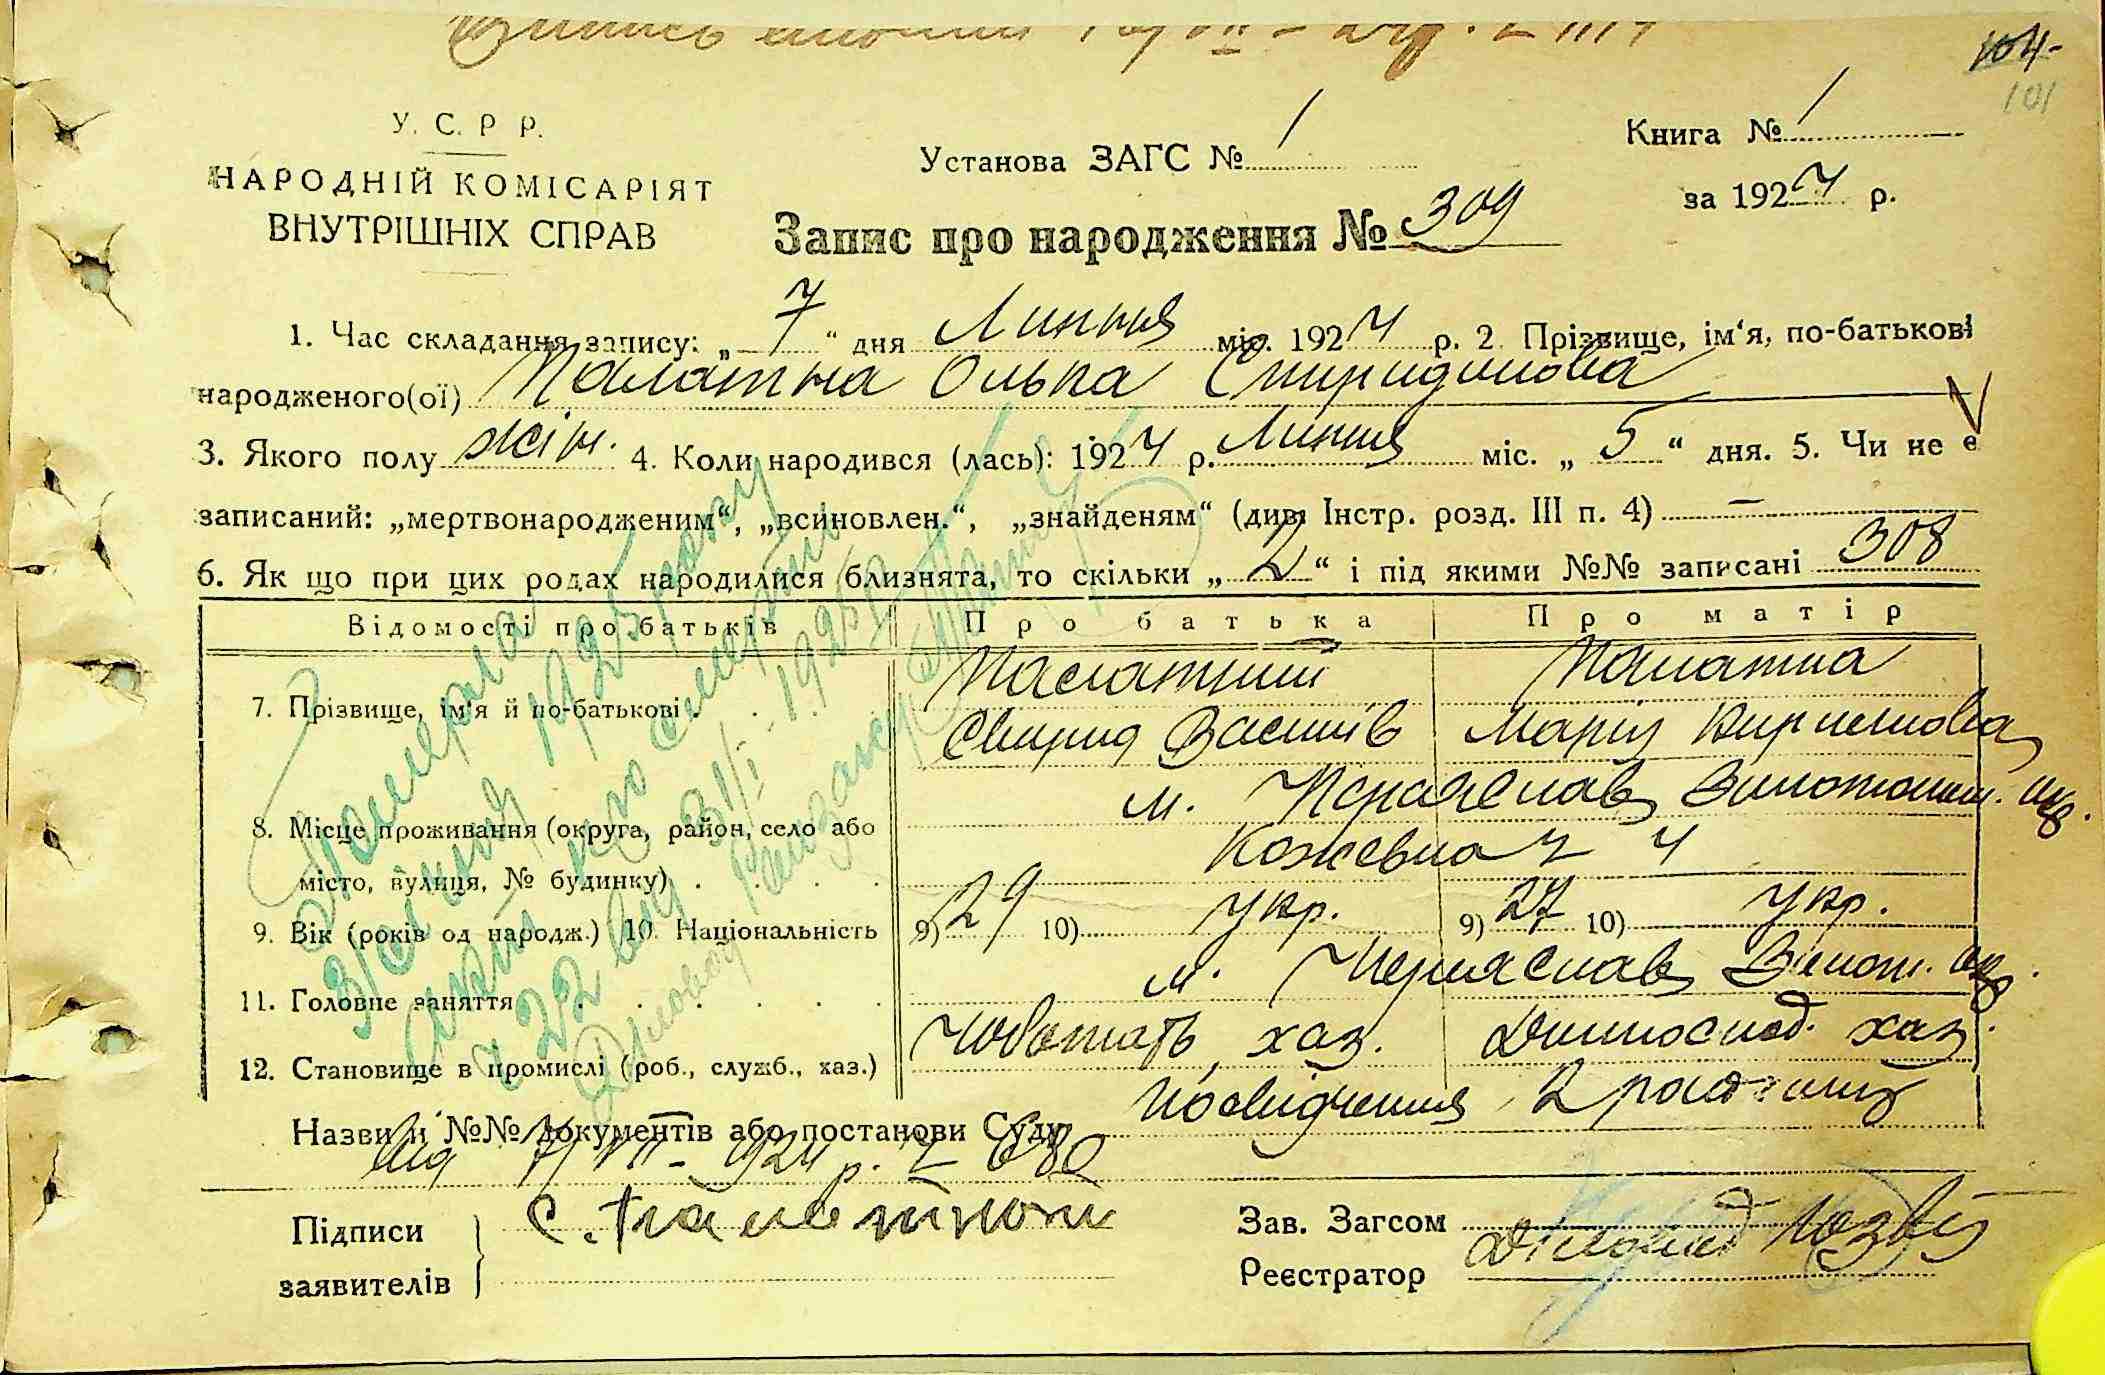 104-
101
У. С. Р Р.
НАРОДНІЙ КОМІСАРІЯТ
ВНУТРІШНІХ СПРАВ
Установа ЗАГС № 1
Книга № 1
за 1924 р.
Запис про народження № 309
1. Час складання запису: „ 7 “ дня Липня міс. 1924 р. 2 Прізвище, ім‘я, по-батькові
народженого(ої) Палатна Ольга Спиридонова
3. Якого полу жін. 4. Коли народився (лась): 1924 р. Липня міс. „ 5 “ дня. 5. Чи не є
записаний: „мертвонародженим“, „всиновлен.“, „знайденям“ (див. Інстр. розд. III п. 4) —
6. Як що при цих родах народилися близнята, то скільки „ 2 “ і під якими №№ записані 308
Відомості про батьків Про батька Про матір
7. Прізвище, ім‘я й по-батькові . Палатний Палатна
Свирид Василів Марія Кирилова
8. Місце проживання (округа, район, село або м. Переяслав Золотоніш. окр.
місто, вулиця, № будинку) . Кожевна 4
9. Вік (років од народж.) 10. Національність 9) 29 10) укр. 9) 27 10) укр.
м. Переяслав Золот. окр.
11. Головне заняття
Чоботарь, хаз. Домогоспод. хаз.
12. Становище в промислі (роб., служб., хаз.)
Назви й №№ документів або постанови Суду Посвідчення
від 7/VII - 924 р. № 680
Померла
1925 року
запис про смерть
ч 22 від 31/I - 1925 р.
Діловод
Підписи
заявителів
С. Палатной
Зав. Загсом
Реєстратор
Діловод